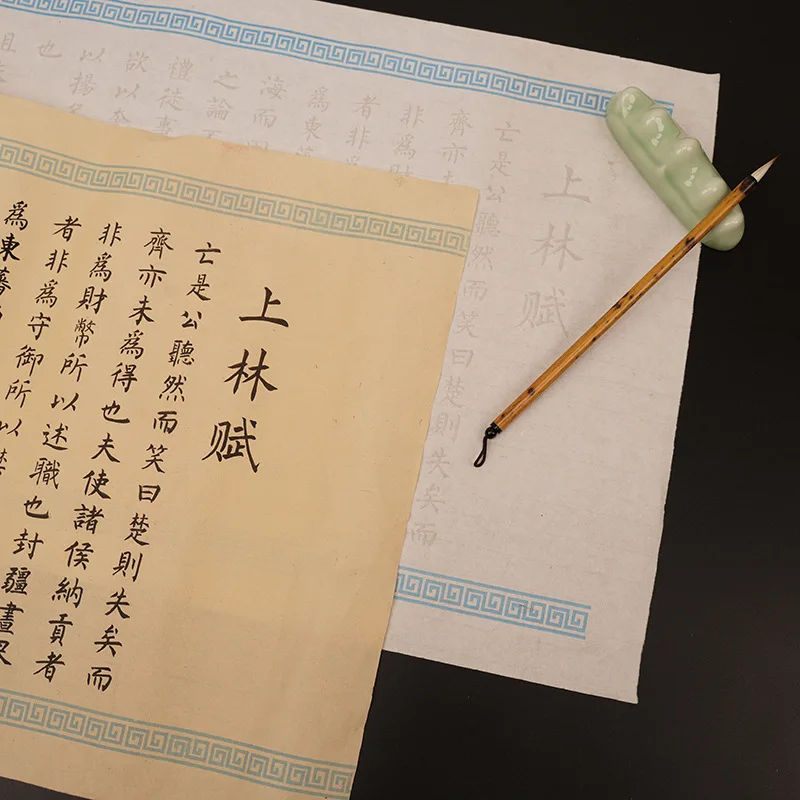 上林赋
亡是公聽然而笑曰楚則失矣而
齊亦未為得也夫使諸侯納貢者
非為財幣所以述職也封疆畫界
者非為守御所以禁
為東藩
上林赋
亡是公聽然而笑曰楚則失矣而
齊亦
非為財
者非為
為東藩
海而
之論
禮徒事
欲以奢
以揚名
也
且